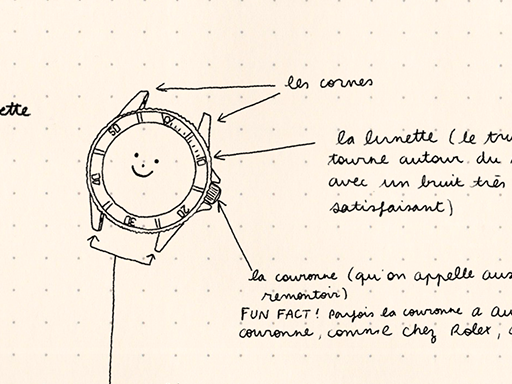 les cornes
ette
la lunette (le tru
tourne autour du
avec un bruit très
satisfaisant)
50
10
40
20
30
la couronne (qu'on appelle aus
remontoir)
FUN FACT! Parfois la couronne a au
couronne, comme chez Rolex,